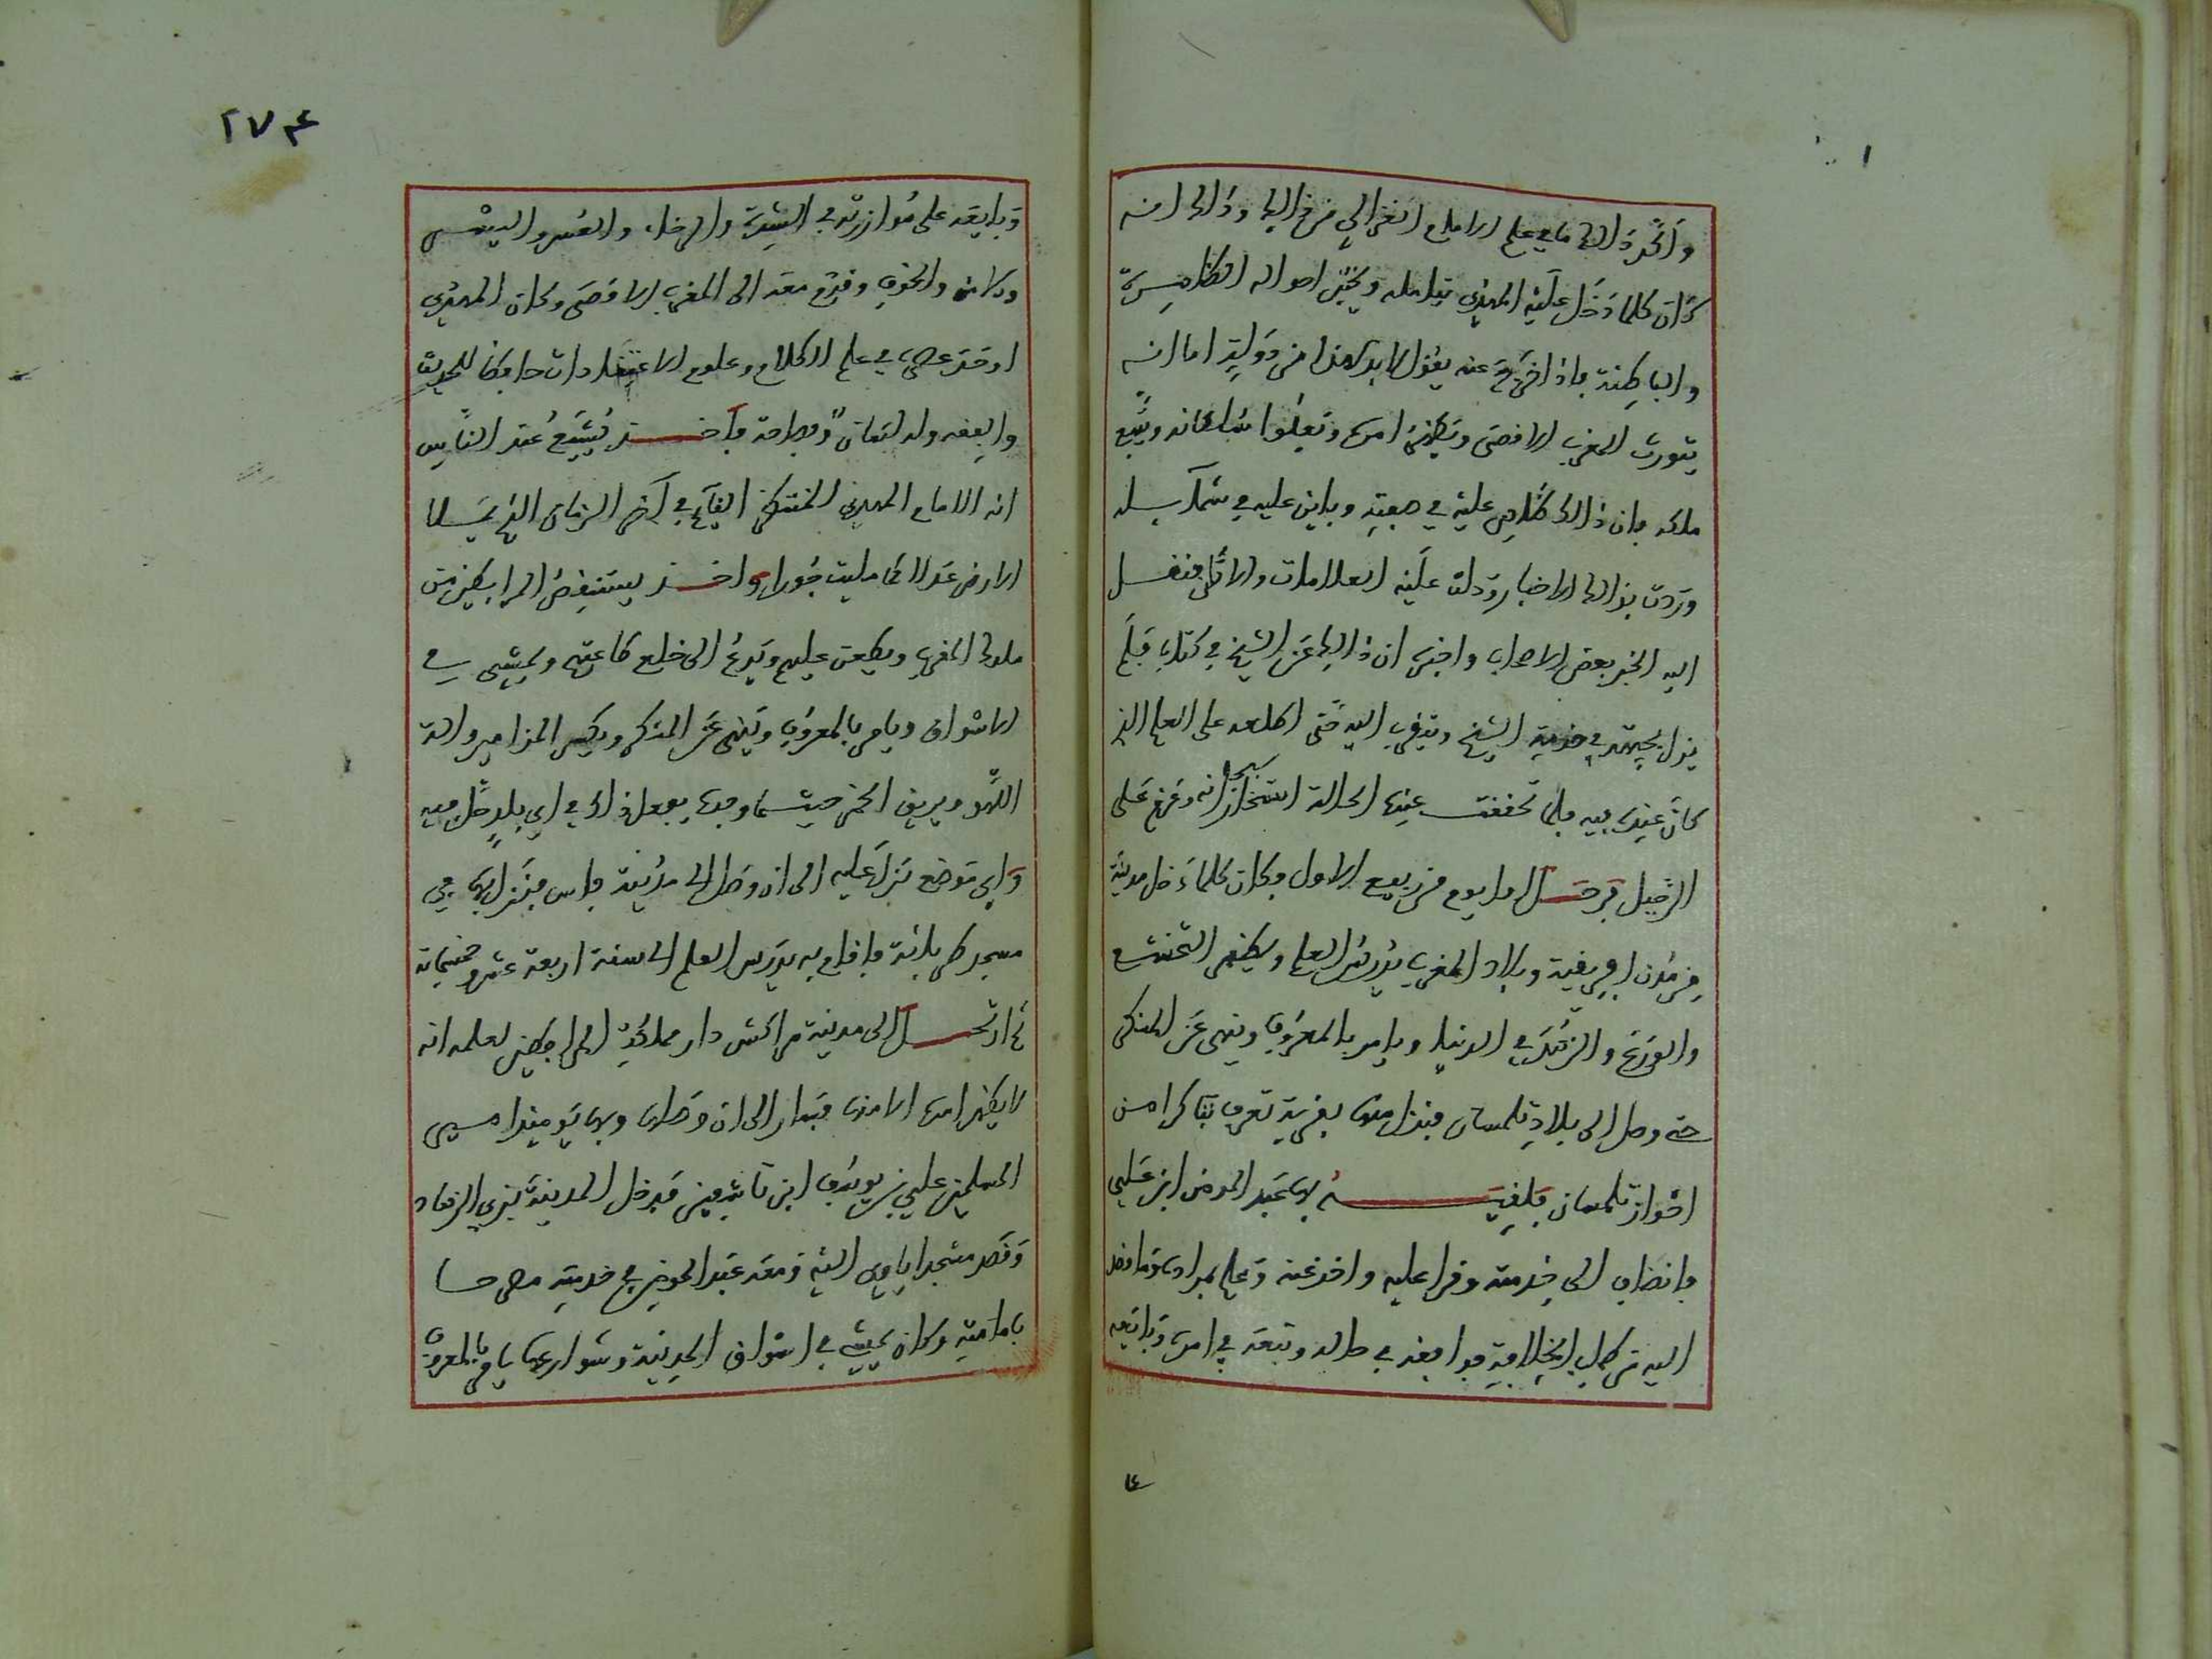 وأكد ذالك ما في علم الامام الغزالي من ذالك وذالك انه
كان كلما دخل عليه المهدي يتامله ويختبر احواله الظاهرة
والباطنة فاذا خرج عنه يقول لا بد لهذا من دولة اما انه
يثور بالمغرب الاقصى ويظهر امره ويعلوا سلطانه ويتسع
ملكه فان ذالك ظاهر عليه في صفته وباين عليه في شمايله
وردت بذالك الاخبار ودلت عليه العلامات والاثار فنقل
اليه الخبر بعض الاصحاب واخبره ان ذالك عند الشيخ في كتاب فلم
يزل يجتهد في خدمة الشيخ ويتقرب اليه حتى اطلعه على العلم الذي
كان عنده فيه فلما تحققت عنده الحالة استخار الله سبحانه وعزم على
الرحيل فرحل اول يوم من ربيع الاول وكان كلما دخل مدينة
من مدن افريقية وبلاد المغرب يدرس العلم ويظهر التخشع
والورع والزهد في الدنيا ويامر بالمعروف وينهى عن المنكر
حتى وصل الى بلاد تلمسان فنزل منها بقرية تعرف بتاكرا من
احواز تلمسان فلقيه بها عبد المومن ابن علي
فانضاف الى خدمته وقرا عليه واخذ عنه وعلم بمراده وما قصد
اليه من طلب الخلافة فوافقه في حاله وتبعه في امره وبايعه
وبايعه على موازرته في الشدة والرخاء والعسر واليسر
والامن والخوف وقدم معه الى المغرب الاقصى وكان المهدي
اوحد عصره في علم الكلام وعلوم الاعتقادات حافظا للحديث
والفقه وله لسان وفصاحة فأخذ يشيع عند الناس
انه الامام المهدي المنتظر القايم في آخر الزمان الذي يملا
الارض عدلا كما مليت جورا واخذ يستنقص المرابطين من
ملوك المغرب ويطعن عليهم ويدعو الى خلع طاعتهم ويمشي في
الاسواق ويامر بالمعروف وينهى عن المنكر ويكسر المزامير والة
اللهو ويريق الخمر حيث ما وجده يفعل ذالك في اي بلد حل فيه
واي موضع نزل عليه الى ان وصل الى مدينة فاس فنزل بها في
مسجد طريانة فاقام به يدرس العلم الى سنة اربعة عشر وخمسماية
ثم ارتحل الى مدينة مراكش دار مملكة المرابطين لعلمه انه
لا يظهر امره الا منها فسار الى ان وصلها وبها يوميذ امير
المسلمين علي بن يوسف ابن تاشفين فدخل المدينة بزي الزهاد
وقصد مسجدا ياوي اليه ومعه عبد المومن في خدمته مصرحا
بامامته وكان يمشي في اسواق المدينة وشوارعها يامر بالمعروف
٢٧٤